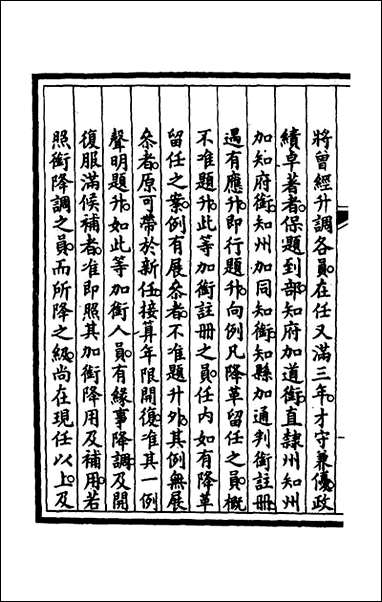 將曾經升調各員在任又滿三年才守兼優政
績卓著者保題到部知府加道銜直隸州知州
加知府銜知州加同知銜知縣加通判銜註冊
遇有應升即行題升向例凡降革留任之員概
不准題升此等加銜註冊之員任内如有降革
留任之案例有展叅者不准題升外其例無展
叅者原可帶於新任接算年限開復准其一例
聲明題升如此等加銜人員有緣事降調及開
復服滿候補者准即照其加銜降用及補用若
照銜降調之員而所降之級尚在現任以上及